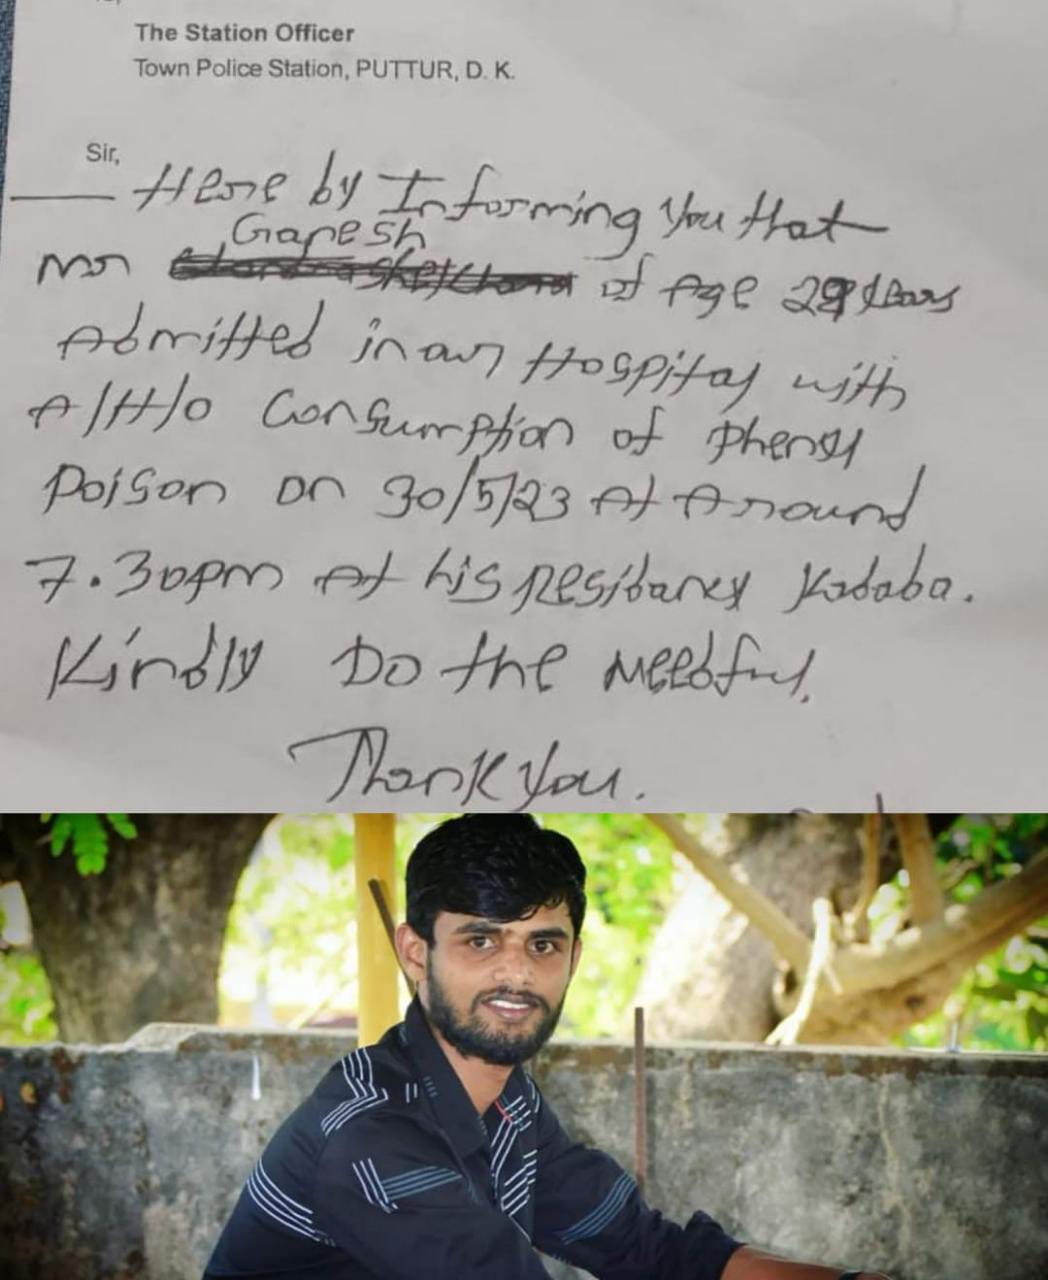 The Station Officer
Town Police Station, PUTTUR, D. K.
Sir,
Here by Informing You that
Ganesh
Mr of Age 29 Years
Admitted in our Hospital with
A/H/O Consumption of Phenyl
Poison on 30/5/23 At Around
7.30pm At his Residancy Kadaba.
Kindly Do the Needful.
Thank You.